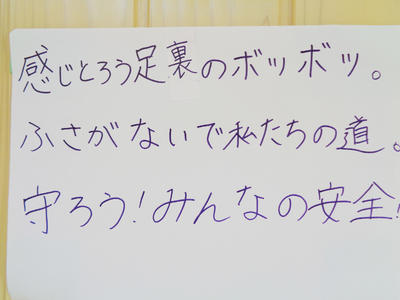 感じとろう足裏のボッボッ。
ふさがないで私たちの道。
守ろう！みんなの安全！